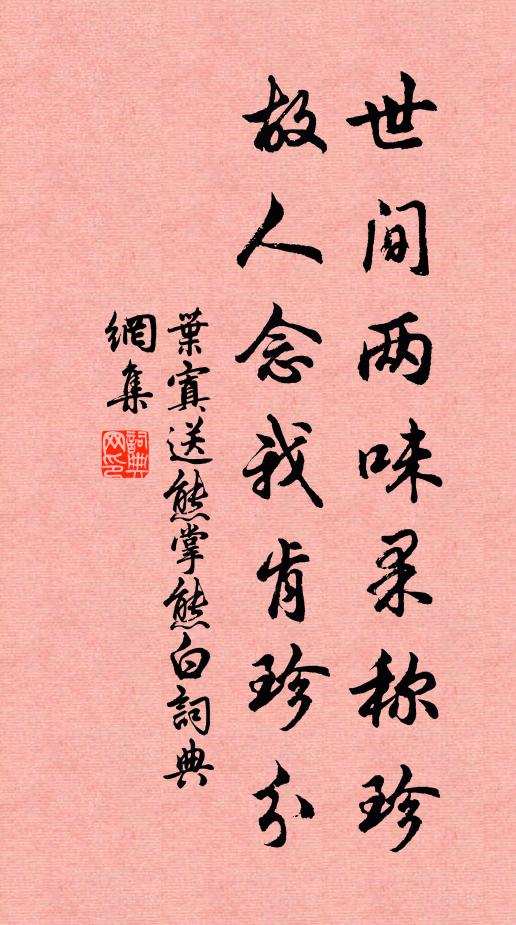 世间两味果称珍
故人念我肯珍分
葉寘送熊掌熊白詞典
網集
詞典
网印